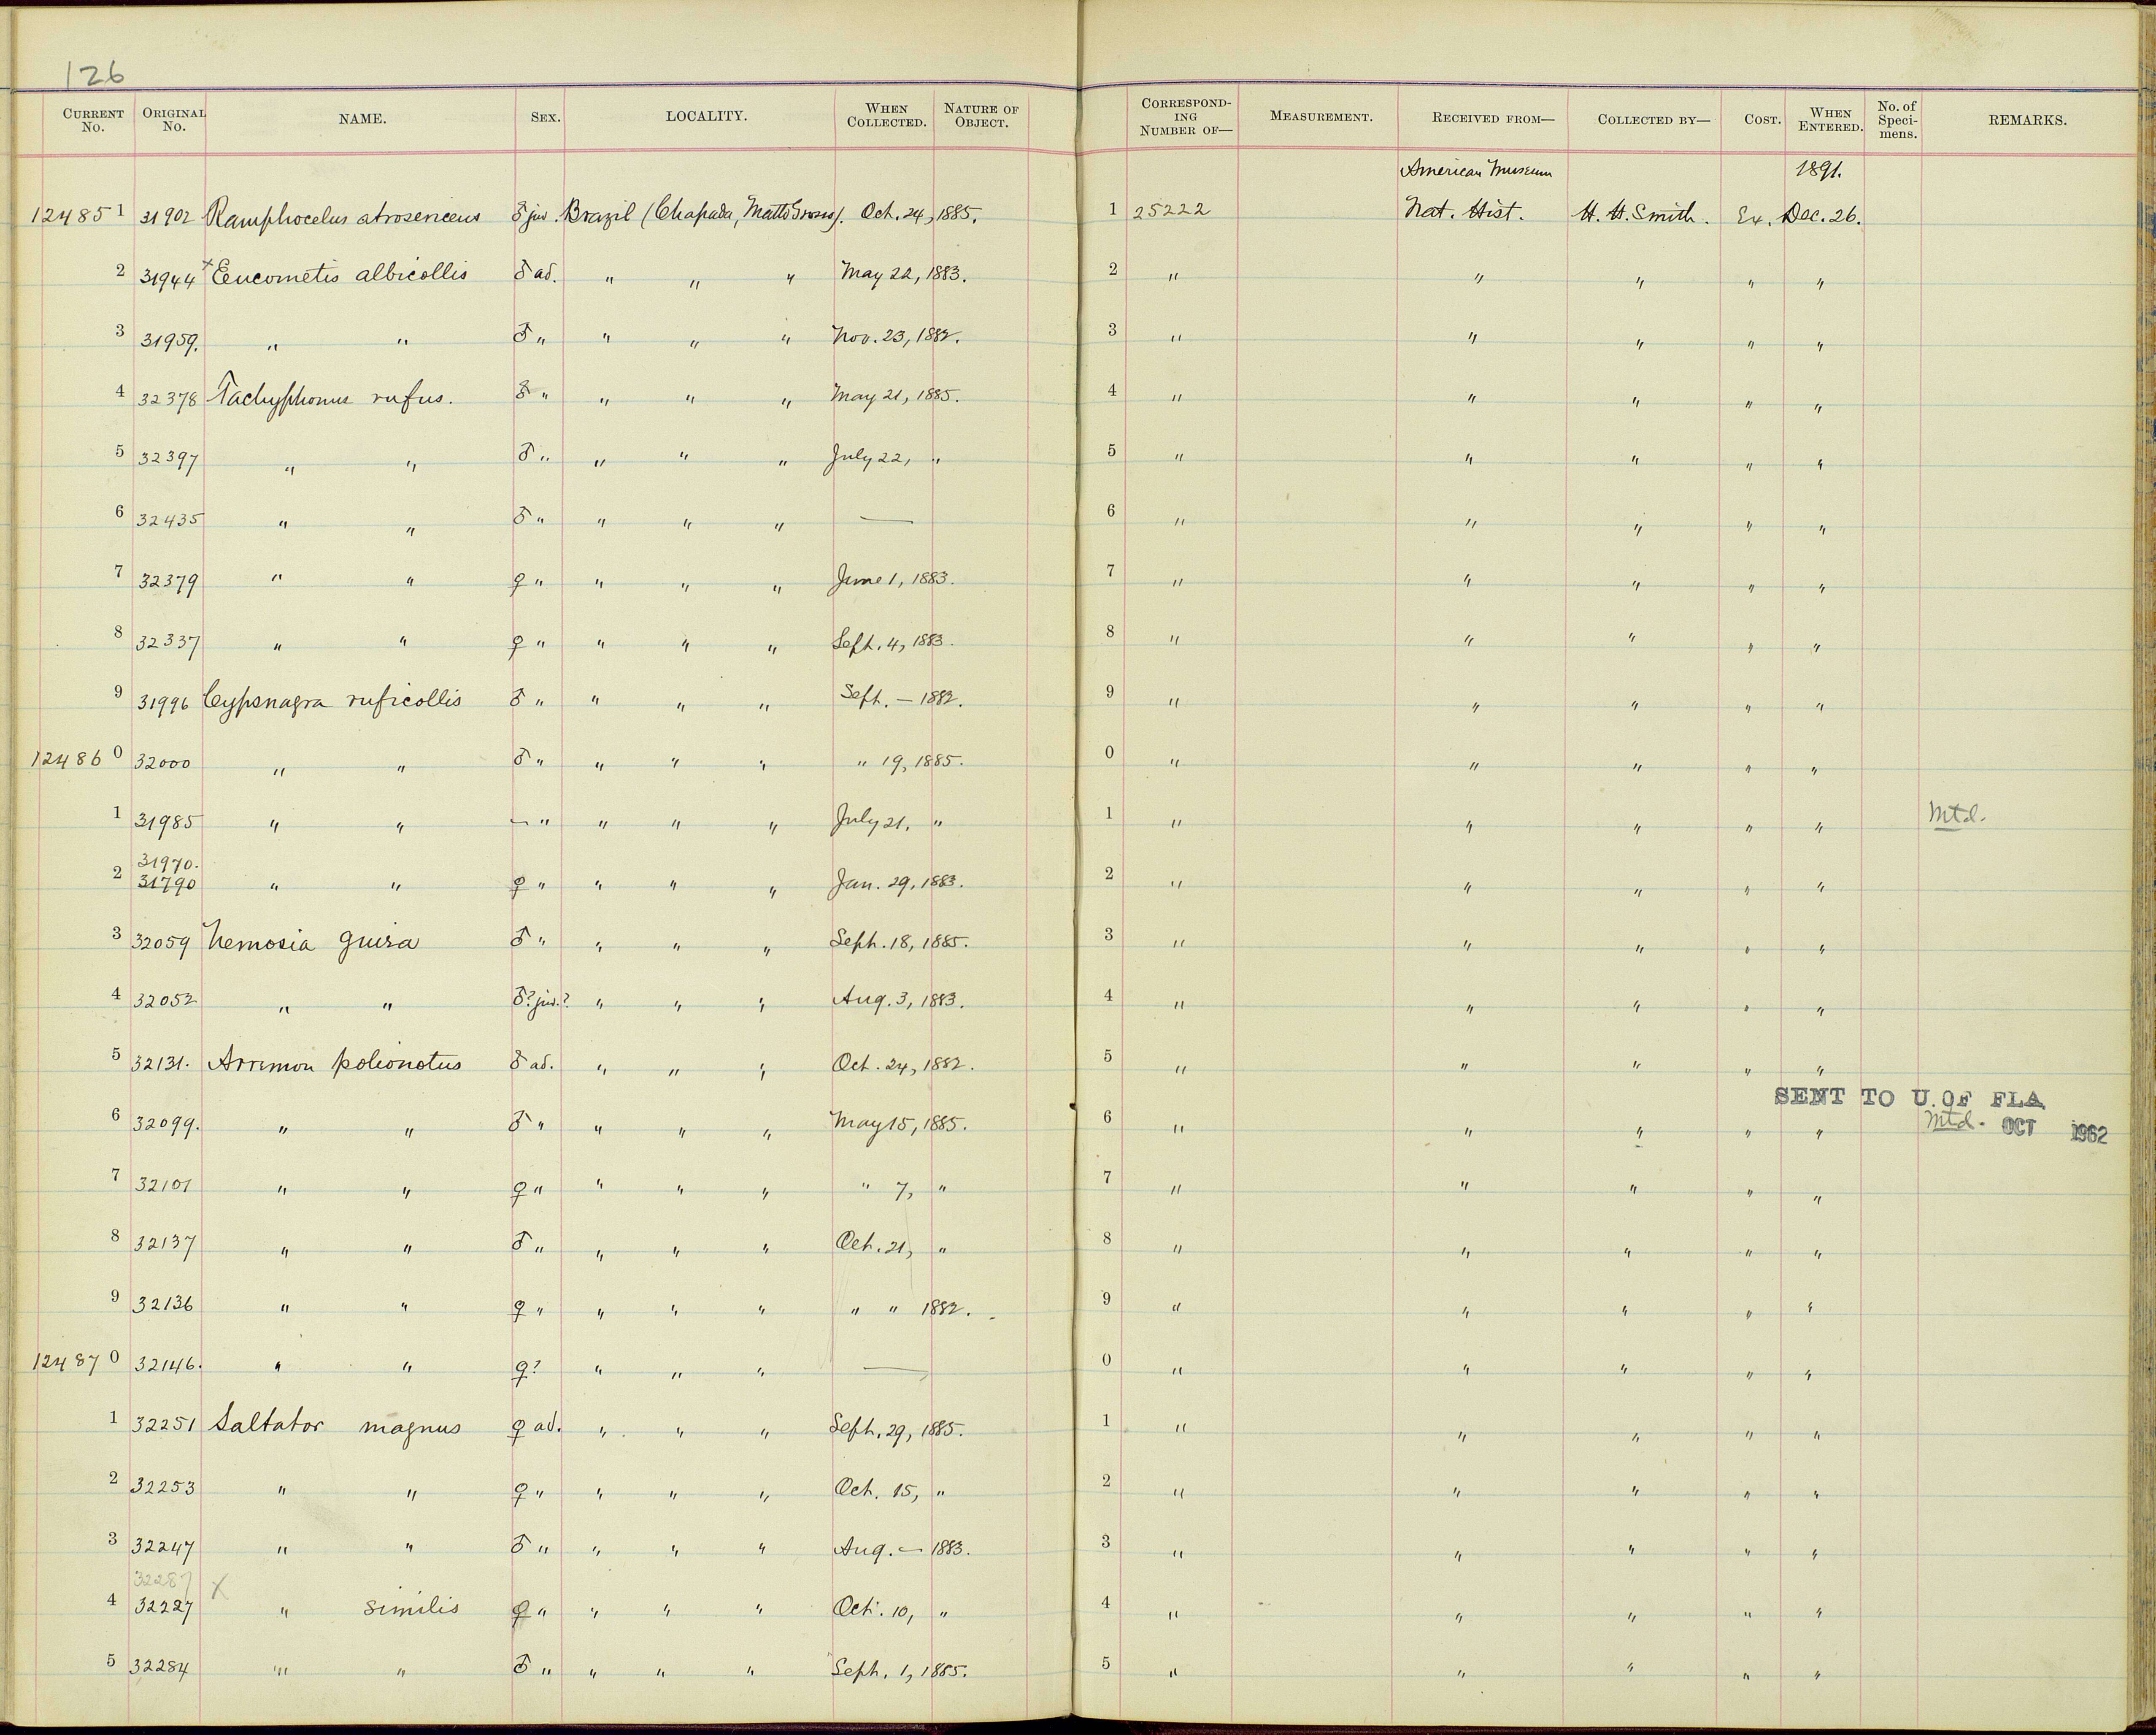 126
CURRENT No. ORIGINAL No. NAME. SEX. LOCALITY. WHEN COLLECTED. NATURE OF OBJECT. CORRESPONDING NUMBER OF— MEASUREMENT. RECEIVED FROM— COLLECTED BY— COST. WHEN ENTERED. No. of Specimens. REMARKS.
American Museum 1891.
12485 1 31902 Ramphocelus atrosericeus ♂ juv. Brazil (Chapada, Matto Grosso). Oct. 24, 1885. 1 25222 Nat. Hist. H. H. Smith. Ex. Dec. 26.
2 31944 × Eucometis albicollis ♂ ad. " " " May 22, 1883. 2 " " " " "
3 31959. " " ♂ " " " " Nov. 23, 1882. 3 " " " " "
4 32378 Tachyphonus rufus. ♂ " " " " May 21, 1885. 4 " " " " "
5 32397 " " ♂ " " " " July 22, " 5 " " " " "
6 32435 " " ♂ " " " " — 6 " " " " "
7 32379 " " ♀ " " " " June 1, 1883. 7 " " " " "
8 32337 " " ♀ " " " " Sept. 4, 1883. 8 " " " " "
9 31996 Cypsnagra ruficollis ♂ " " " " Sept. — 1882. 9 " " " " "
12486 0 32000 " " ♂ " " " " " 19, 1885. 0 " " " " "
1 31985 " " — " " " " July 21, " 1 " " " " " Mtd.
31970.
2 31790 " " ♀ " " " " Jan. 29, 1883. 2 " " " " "
3 32059 Nemosia guira ♂ " " " " Sept. 18, 1885. 3 " " " " "
4 32052 " " ♂? juv.? " " " Aug. 3, 1883. 4 " " " " "
5 32131. Arremon polionotus ♂ ad. " " " Oct. 24, 1882. 5 " " " " "
SENT TO U. OF FLA
6 32099. " " ♂ " " " " May 15, 1885. 6 " " " " " Mtd. OCT 1962
7 32101 " " ♀ " " " " " 7, " 7 " " " " "
8 32137 " " ♂ " " " " Oct. 21, " 8 " " " " "
9 32136 " " ♀ " " " " " " 1882. 9 " " " " "
12487 0 32146. " " ♀? " " " — 0 " " " " "
1 32251 Saltator magnus ♀ ad. " " " Sept. 29, 1885. 1 " " " " "
2 32253 " " ♀ " " " " Oct. 15, " 2 " " " " "
3 32247 " " ♂ " " " " Aug. — 1883. 3 " " " " "
32287 ×
4 32227 " similis ♀ " " " " Oct. 10, " 4 " " " " "
5 32284 " " ♂ " " " " Sept. 1, 1885. 5 " " " " "